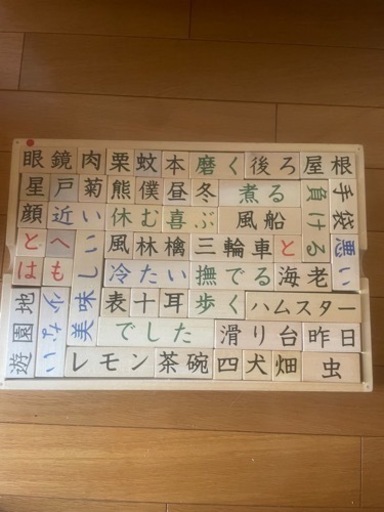 眼鏡 肉 栗 蚊 本 磨く 後ろ 屋根
星 戸 菊 熊 僕 昼 冬 煮る
負ける
手袋
顔 近い 休む 喜ぶ 風船
と へ 風 林檎 三輪車 と
悪い
は も 冷たい 撫でる 海老
美味しい
遊園地
少ない
表 十 耳 歩く ハムスター
でした 滑り台 昨日
レモン 茶碗 四 犬 畑 虫